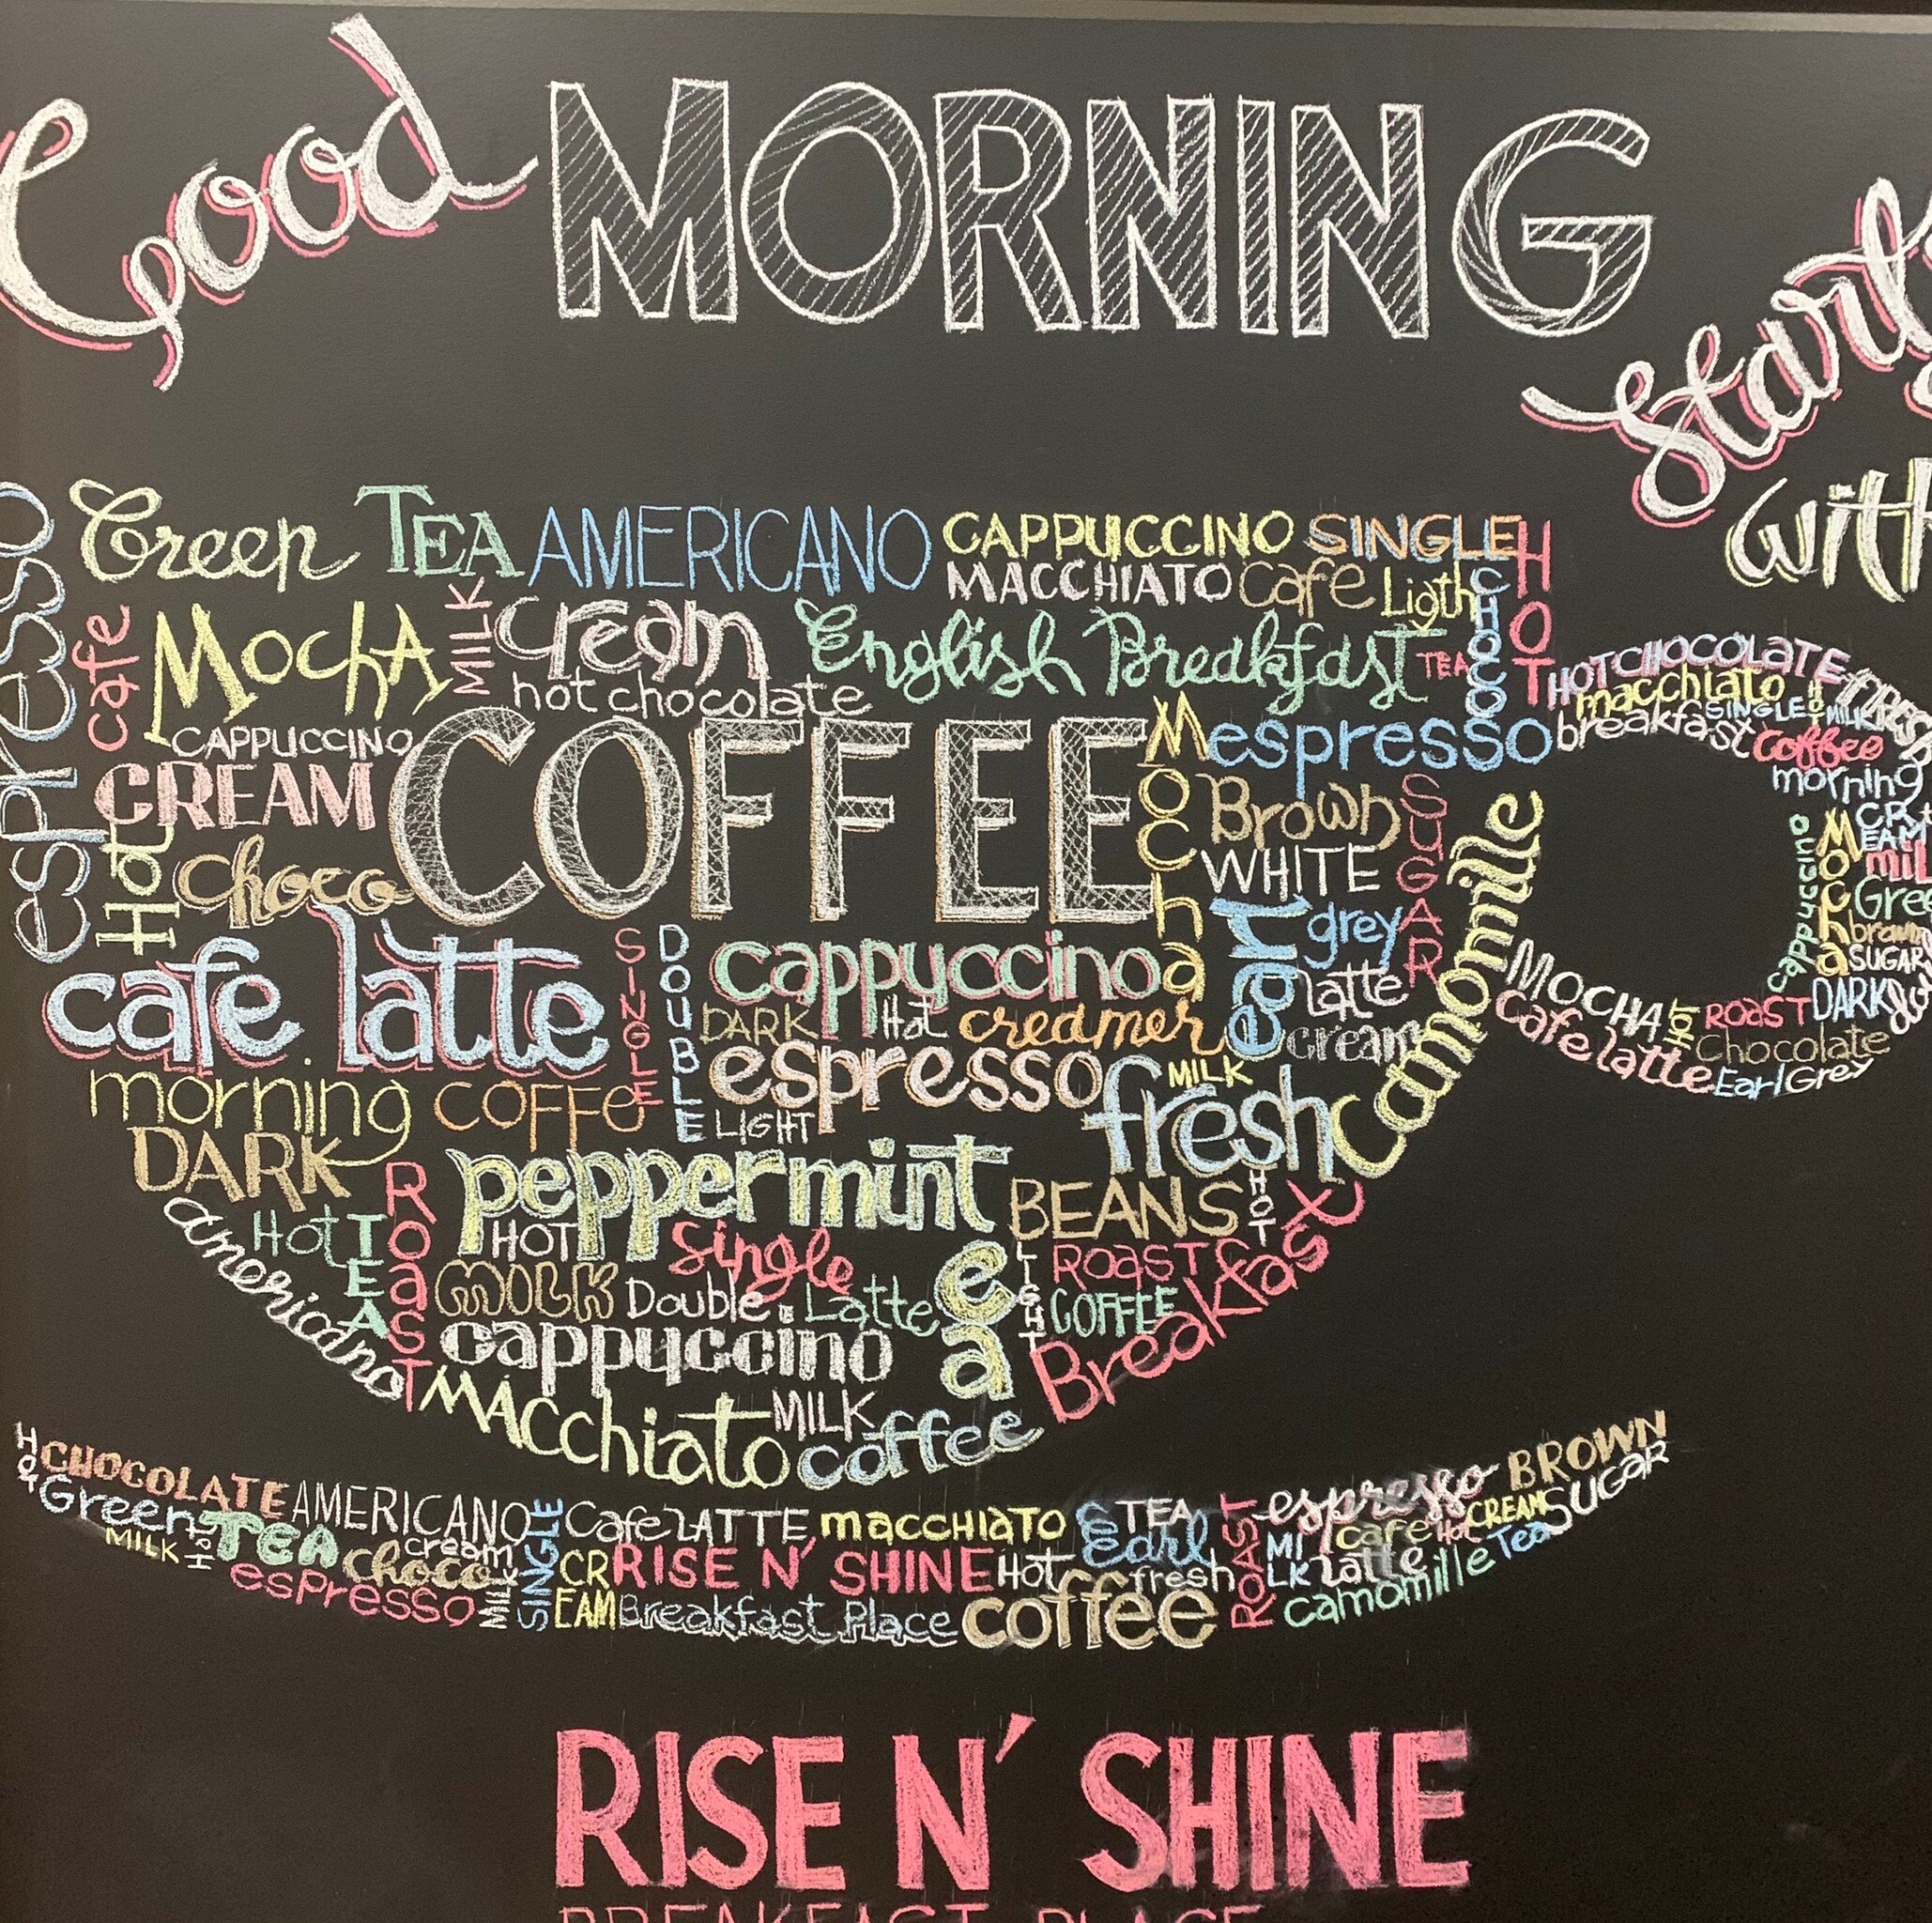 Good MORNING
starts
with
espresso
Green TEA AMERICANO CAPPUCCINO SINGLE HOT
MACCHIATO cafe Ligth CHOCO
cafe MochA MILK cream English Breakfast TEA
hot chocolate
CAPPUCCINO COFFEE Mocha espresso
CREAM
Hot choco
Brown SUGAR
WHITE
earl grey
latte
cream
camomille
cafe latte SINGLE DOUBLE cappuccino
DARK Hot creamer
espresso MILK
morning COFFe LIGHT fresh
DARK
ROAST peppermint tea BEANS HOT
americano Hot TEA HOT Single LIGHT ROAST
MILK Double Latte COFFEE
cappuccino Breakfast
MAcchiato MILK coffee
HOTCHOCOLATE
macchiato HOT
SINGLE MILK
breakfast coffee
morning
CREAM
cappuccino Mocha
Gre
brown
SUGAR
MOCHA HOT ROAST DARK
cafe latte Chocolate
Earl Grey
HOT CHOCOLATE AMERICANO SINGLE Cafe LATTE macchiato TEA ROAST espresso BROWN
Green TEA cream Earl cafe Hot CREAM SUGAR
MILK Hot choco MILK CREAM RISE N' SHINE Hot fresh MILK Latte Tea
espresso Breakfast Place coffee camomille
RISE N' SHINE
BREAKFAST PLACE